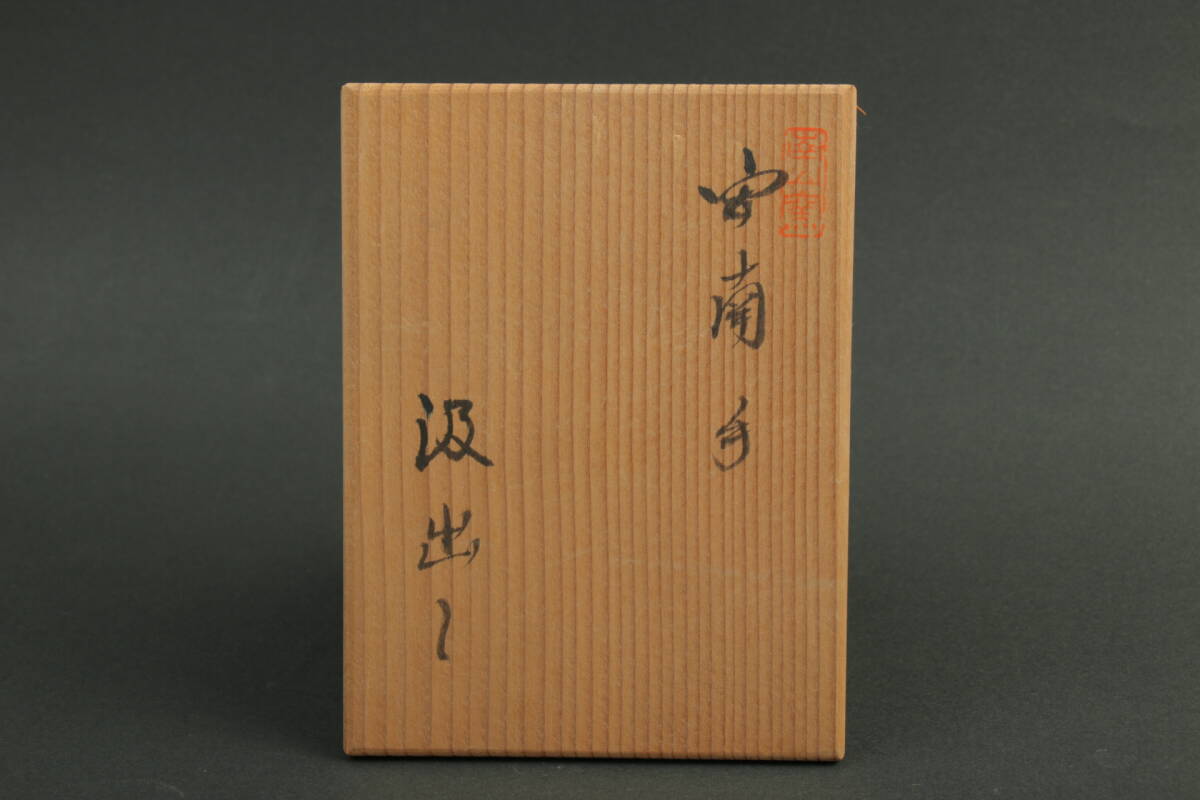 安南手
汲出し